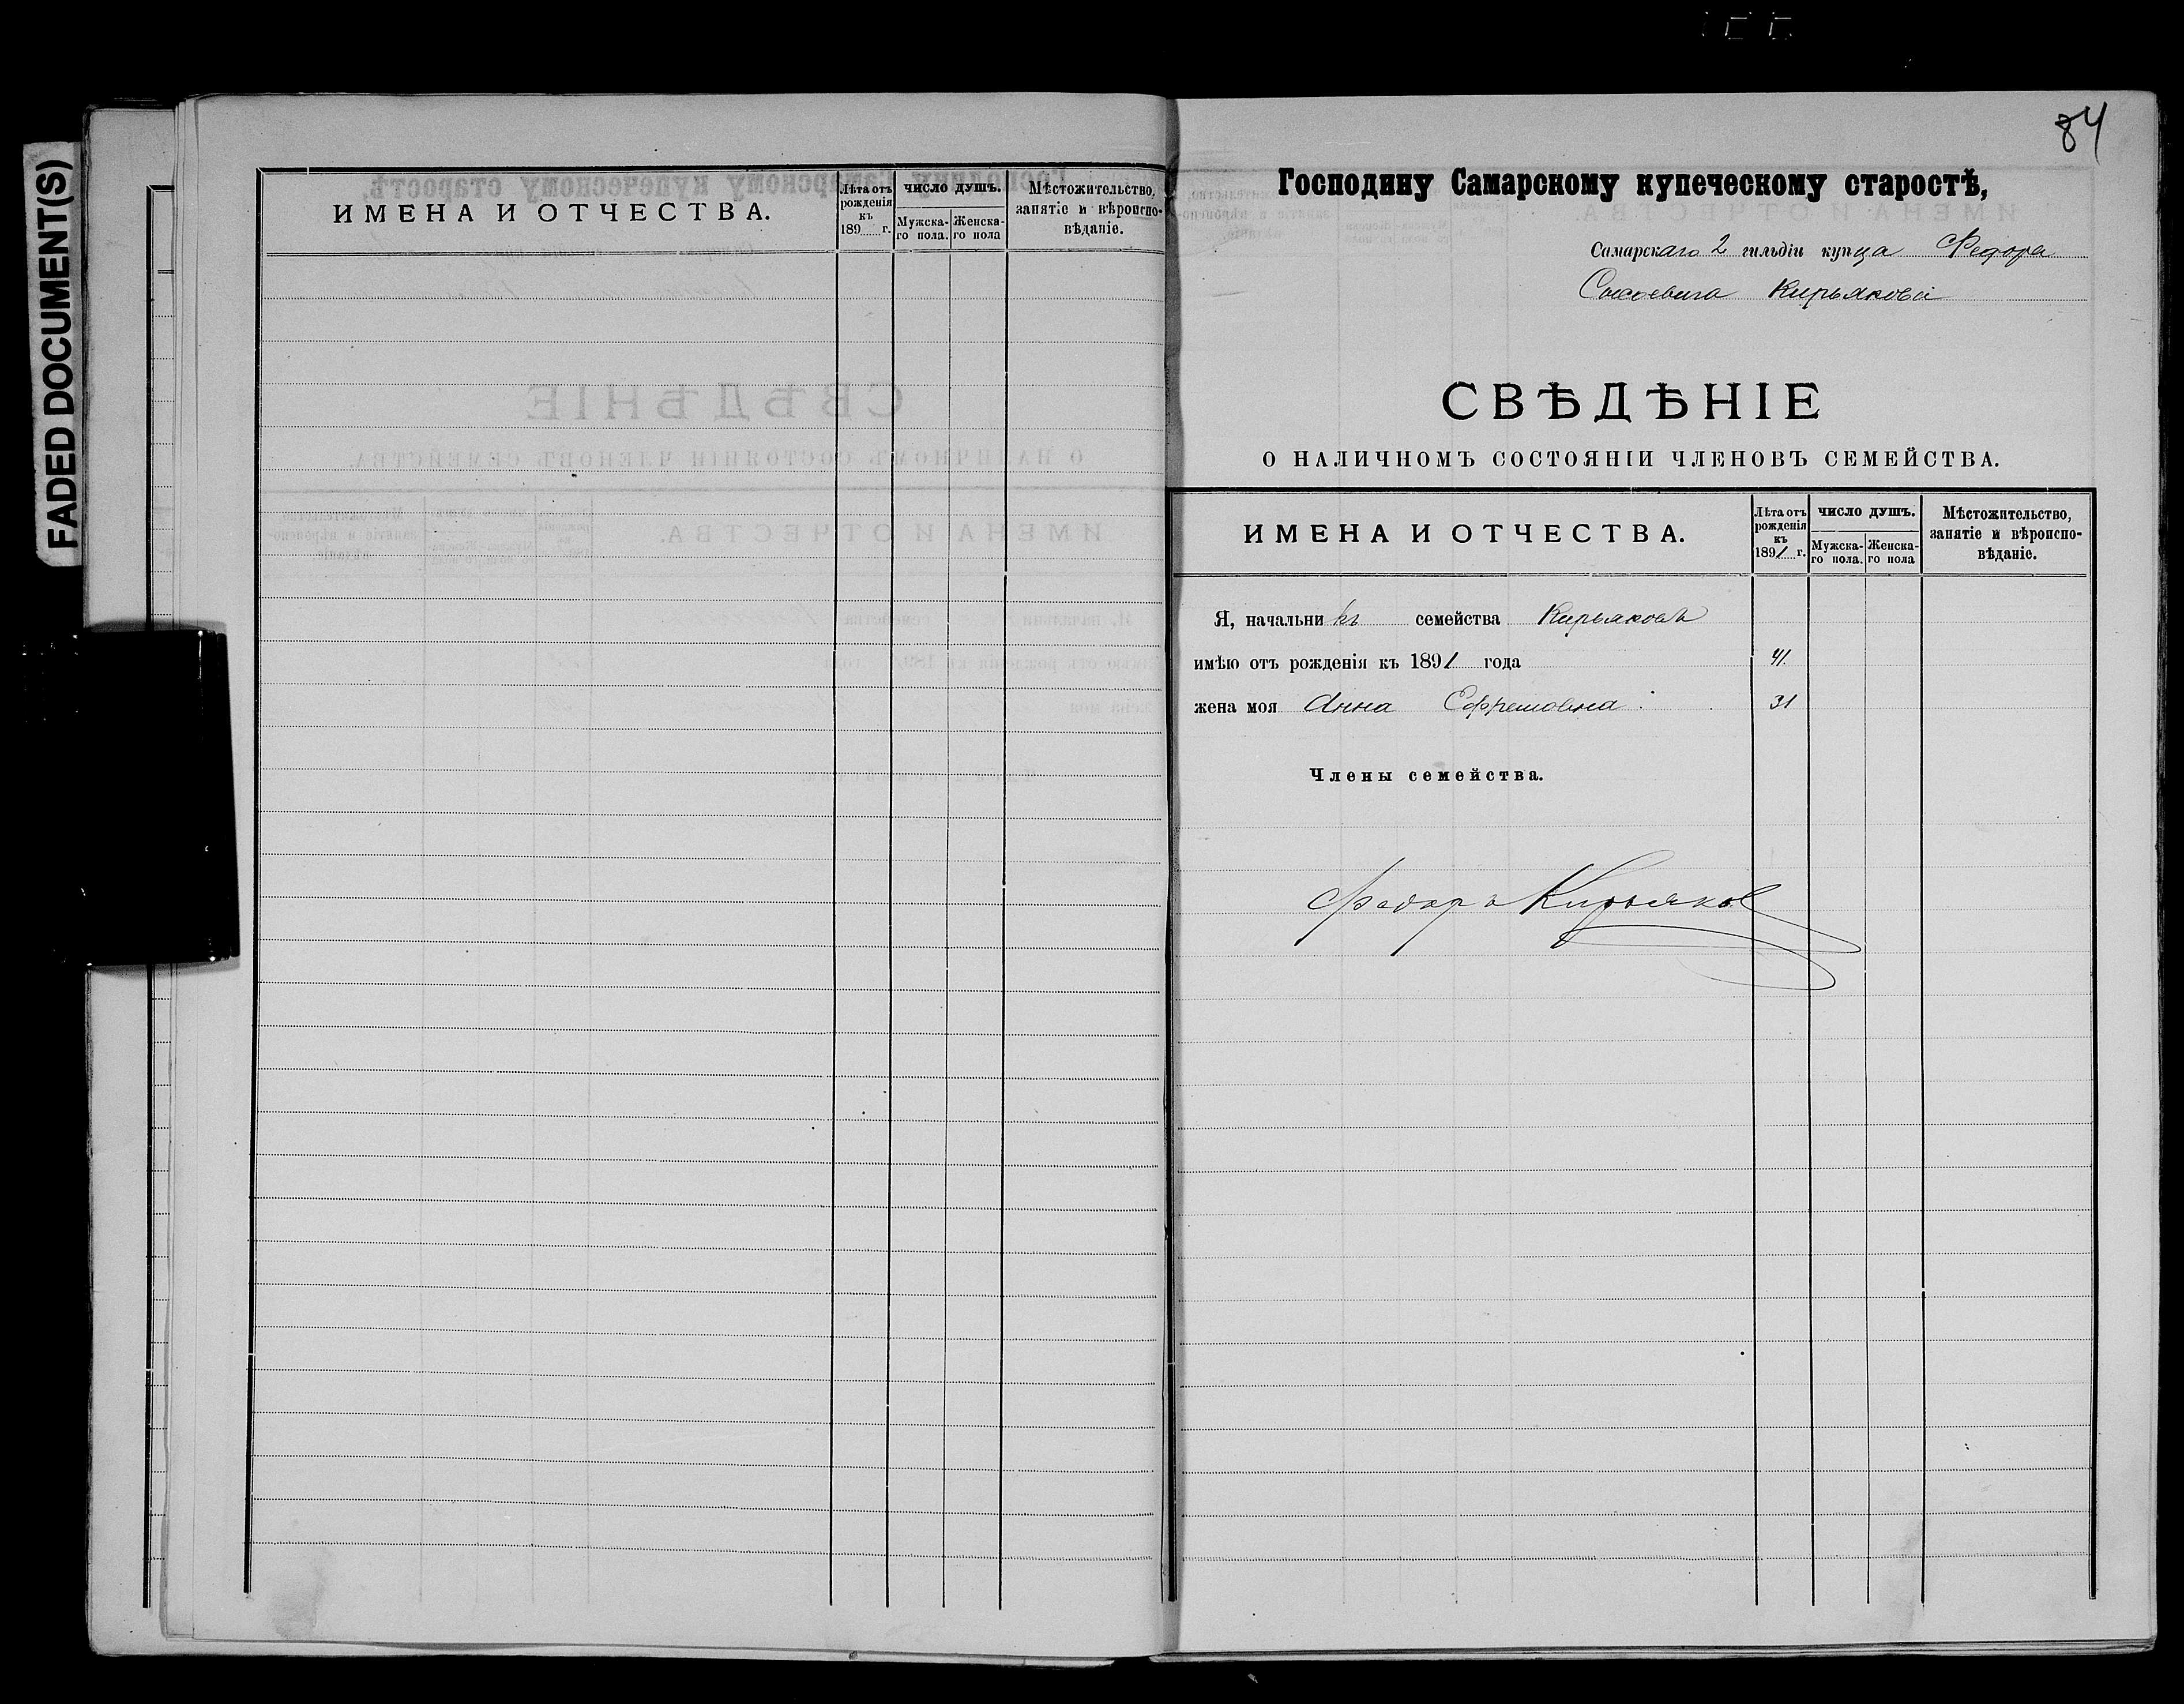 FADED DOCUMENT(S)
ИМЕНА И ОТЧЕСТВА.
Лѣта отъ рожденія къ 189 г.
ЧИСЛО ДУШЪ.
Мужска-го пола.
Женска-го пола
Мѣстожительство, занятіе и вѣроиспо-вѣданіе.
84
Господину Самарскому купеческому старостѣ,
Самарскаго 2 гильдіи купца Федора
Сысоевича Кирьякова
СВѢДѢНІЕ
О НАЛИЧНОМЪ СОСТОЯНІИ ЧЛЕНОВЪ СЕМЕЙСТВА.
ИМЕНА И ОТЧЕСТВА.
Лѣта отъ рожденія къ 1891 г.
ЧИСЛО ДУШЪ.
Мужска-го пола.
Женска-го пола
Мѣстожительство, занятіе и вѣроиспо-вѣданіе.
Я, начальникъ семейства Кирьяковъ
имѣю отъ рожденія къ 1891 года 41.
жена моя Анна Ефремовна 31
Члены семейства.
Федоръ Кирьяков